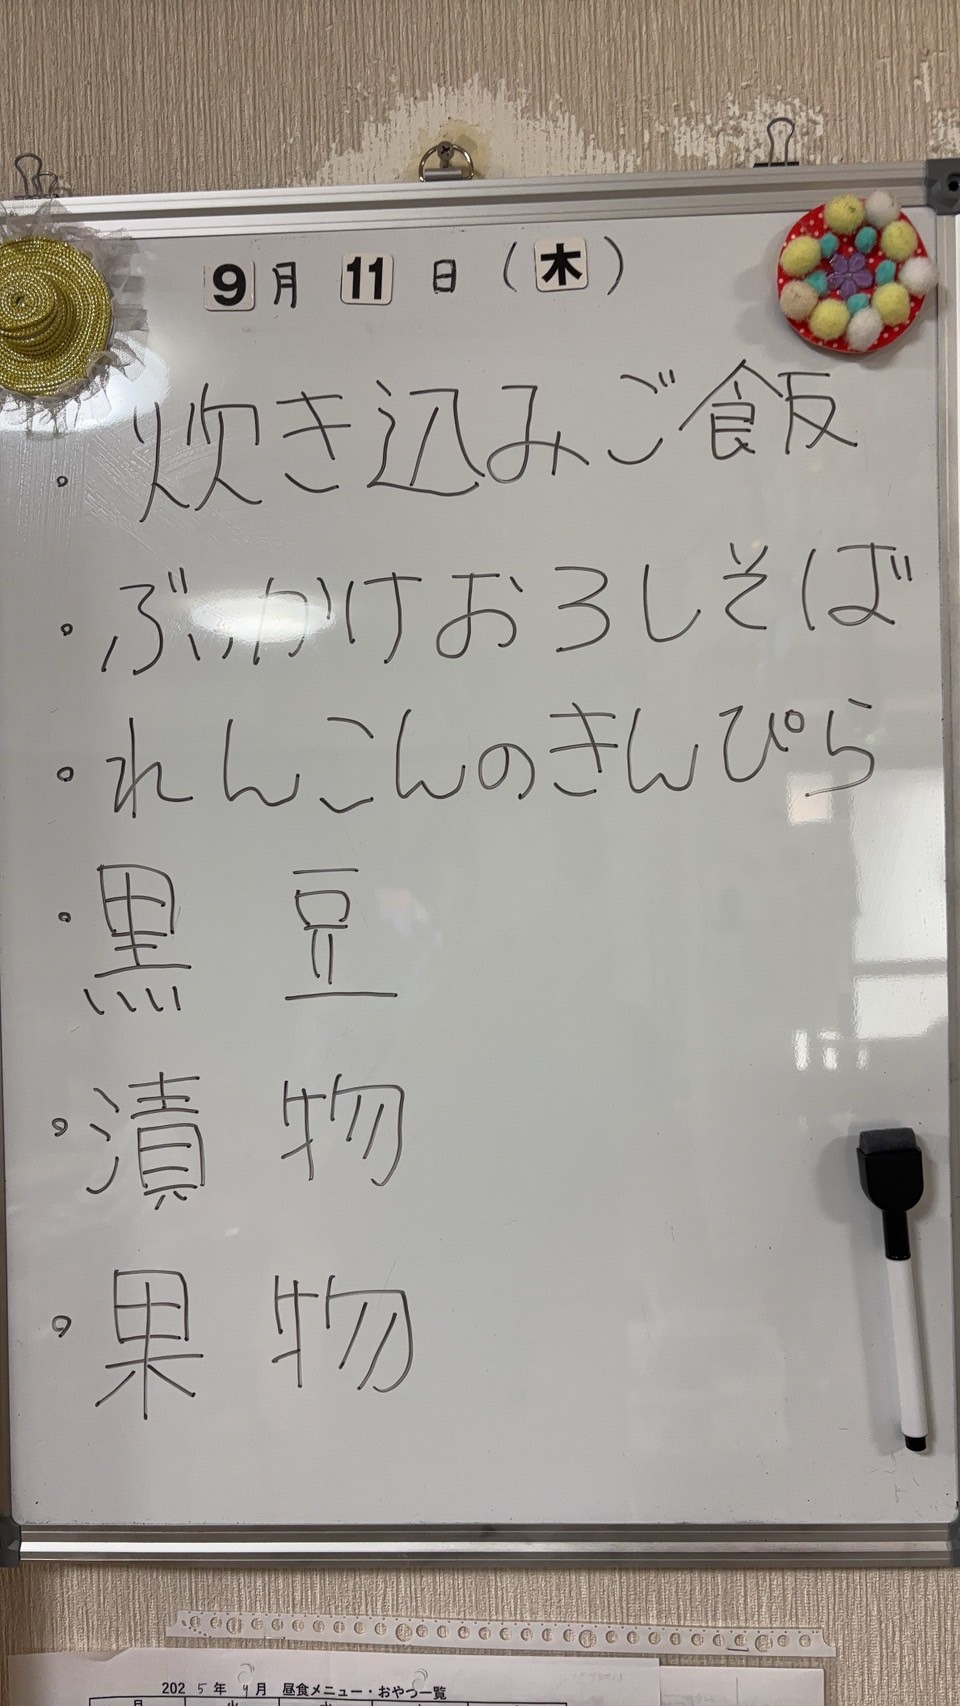 9月 11日(木)
・炊き込みご飯
・ぶっかけおろしそば
・れんこんのきんぴら
・黒豆
・漬物
・果物
2025年9月 昼食メニュー・おやつ一覧